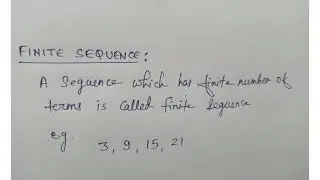 FINITE SEQUENCE:
A Sequence which has finite number of
terms is called finite Sequence
e.g. 3, 9, 15, 21